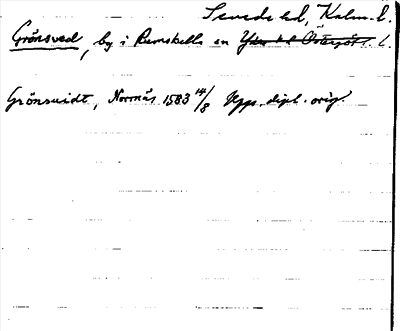 Sevede hd, Kalm. l.
Grönsved, by i Rumskulla sn Ydre hd Östergötl. l.
Grönsuidt, Norrnäs 1583 14/8 Upps. dipl. orig.